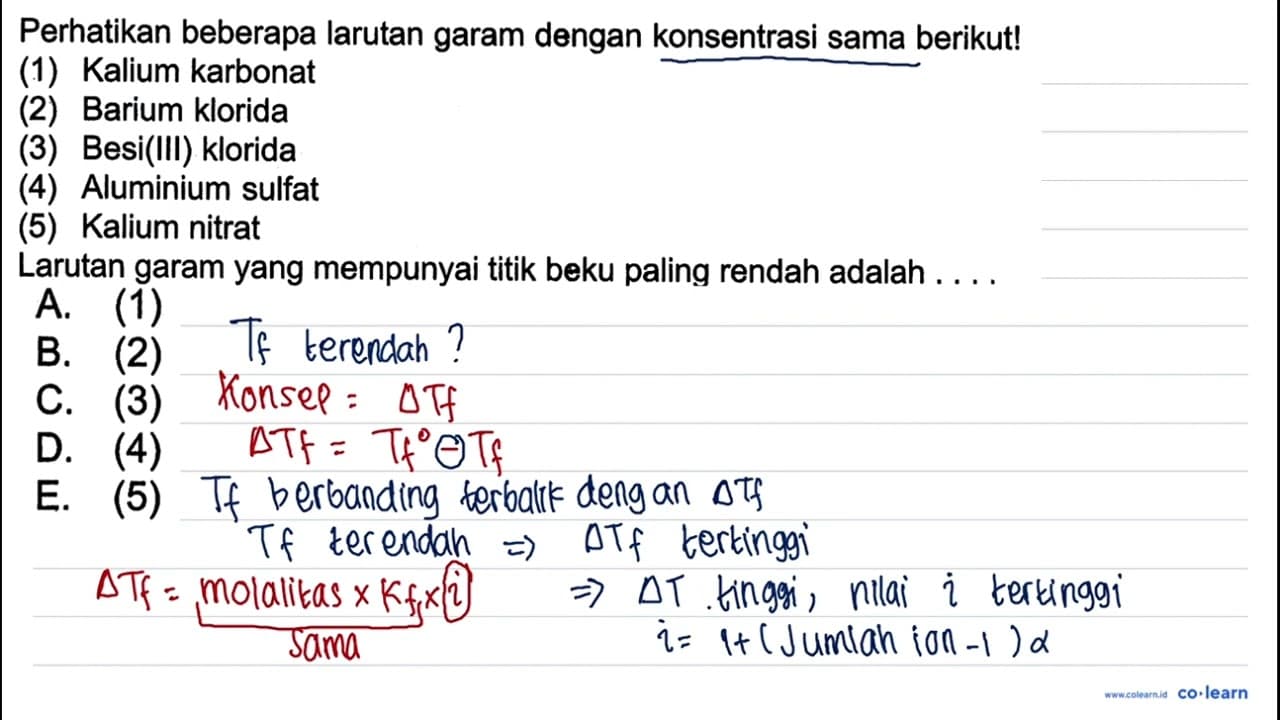 Perhatikan beberapa larutan garam dengan konsentrasi sama berikut!
(1) Kalium karbonat
(2) Barium klorida
(3) Besi(III) klorida
(4) Aluminium sulfat
(5) Kalium nitrat
Larutan garam yang mempunyai titik beku paling rendah adalah . . . .
A. (1)
B. (2)
C. (3)
D. (4)
E. (5)
Tf terendah ?
Konsep = ΔTf
ΔTf = Tf° ⊖ Tf
Tf berbanding terbalik dengan ΔTf
Tf terendah => ΔTf tertinggi
ΔTf = molalitas x Kf x i
sama
=> ΔT tinggi, nilai i tertinggi
i = 1 + (Jumlah ion - 1) α
www.colearn.id co·learn